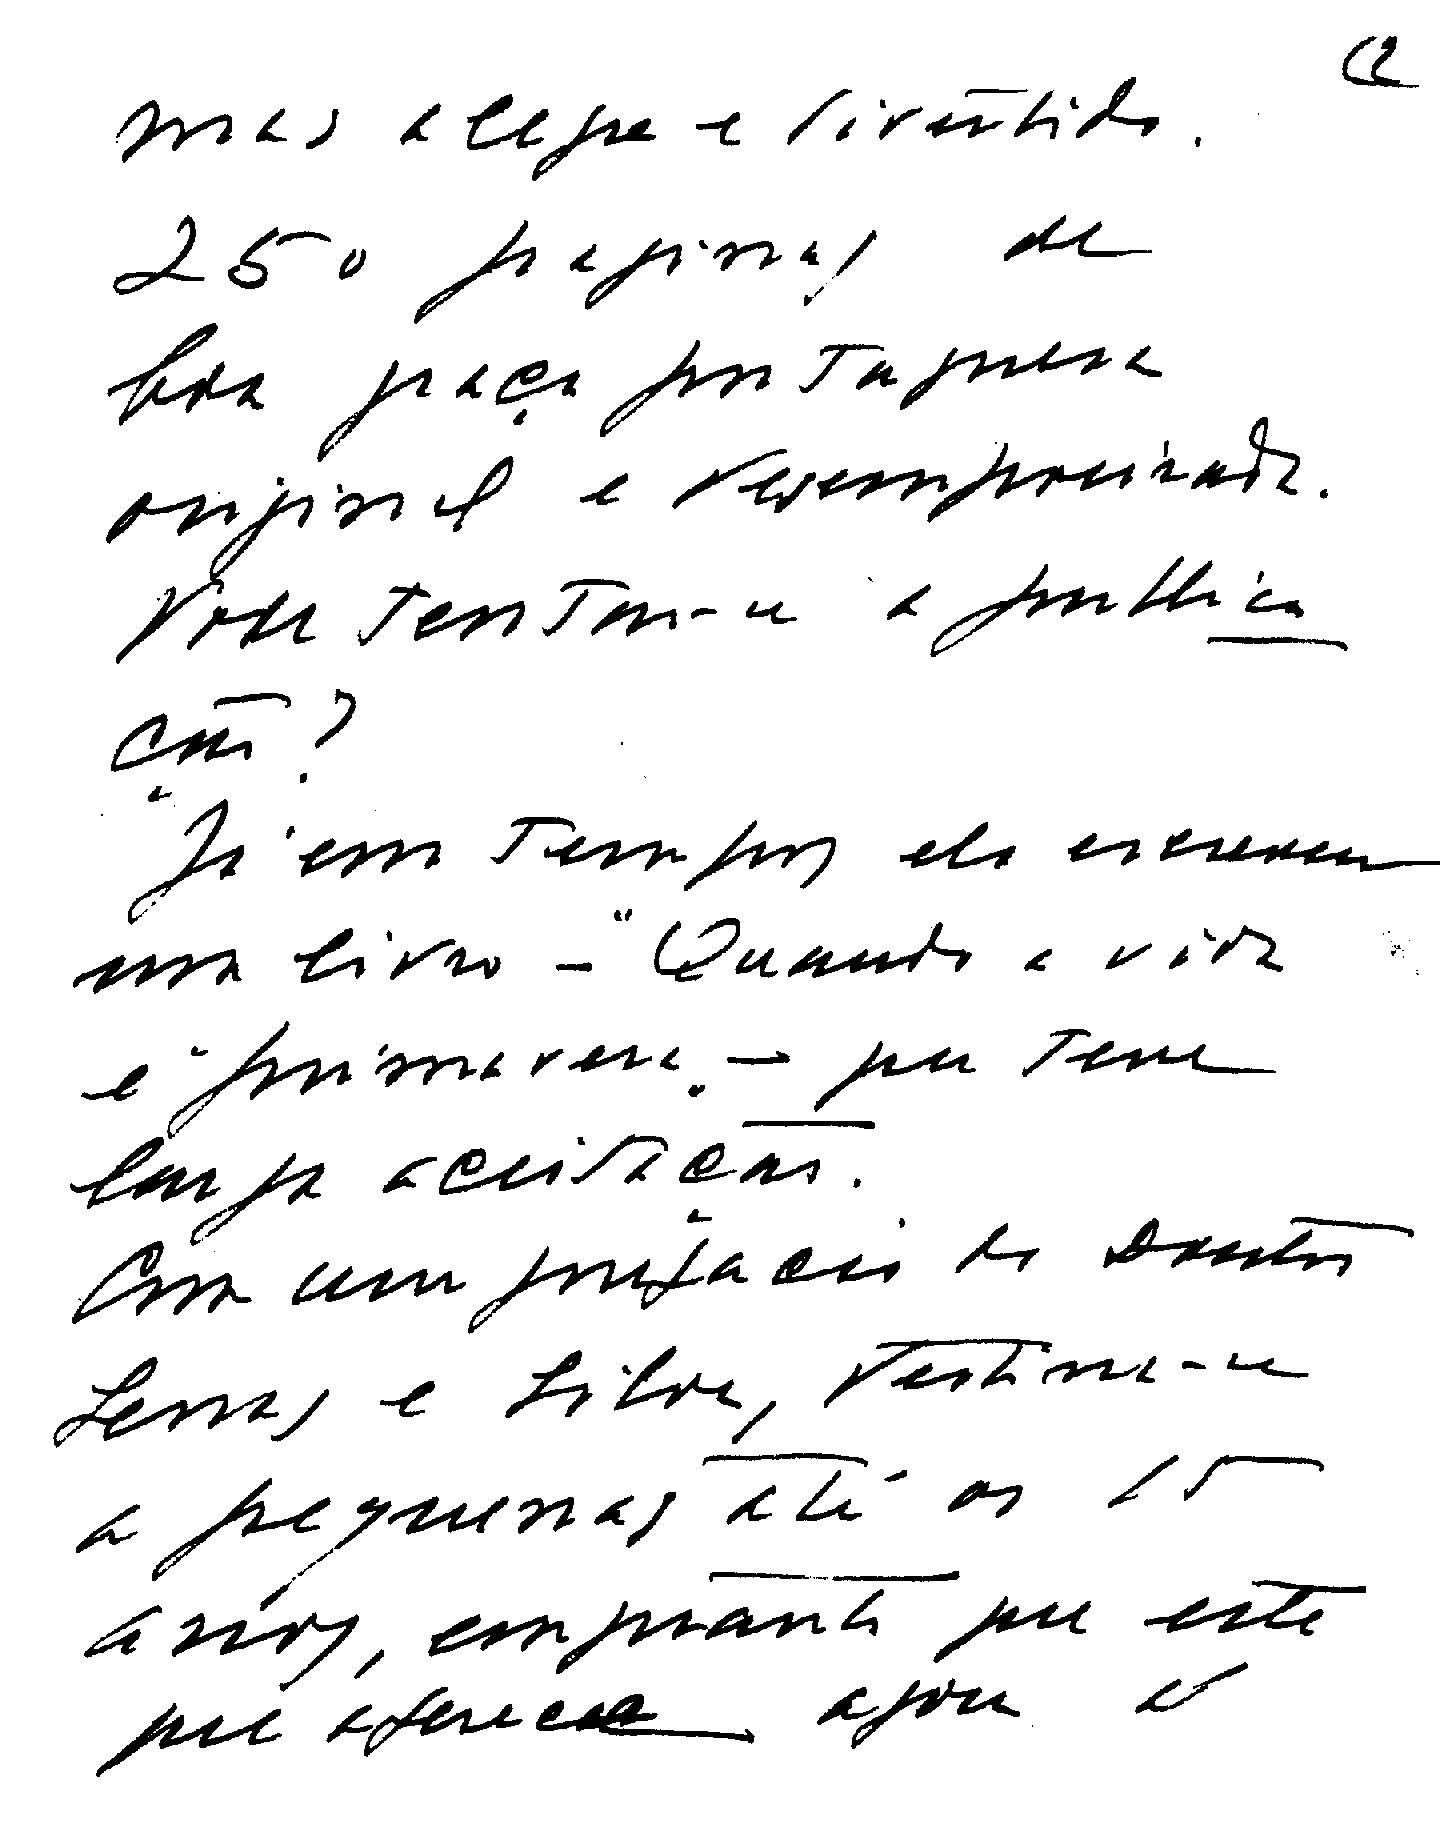 (2
mas alegre e divertido.
250 paginas de
boa graça portuguesa
original e desempoeirada.
Pode tentar-se a publica
ção?
Já em tempos ela escreveu
um livro - "Quando a vida
é primavera" - que teve
larga aceitação.
Com um prefacio do Doutor
Lemos e Silva, destina-se
a pequenas até os 15
anos, emquanto que este
que oferece agora é